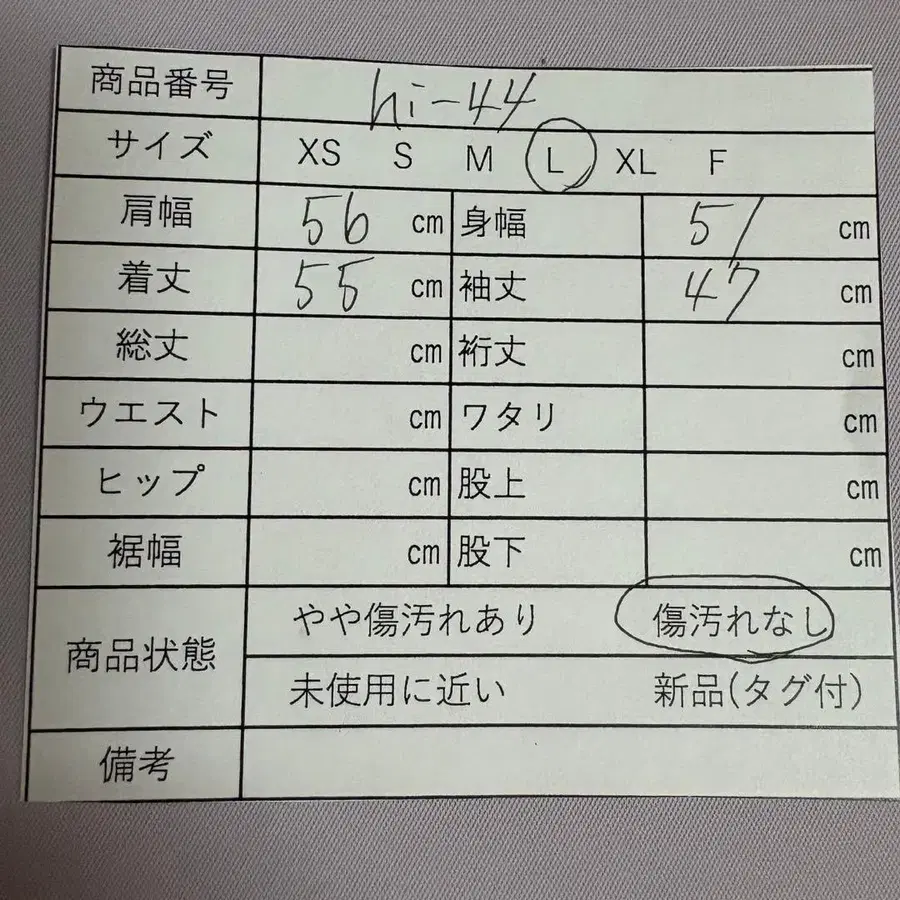 商品番号 hi-44
サイズ XS S M L XL F
肩幅 56 cm 身幅 51 cm
着丈 55 cm 袖丈 47 cm
総丈 cm 裄丈 cm
ウエスト cm ワタリ cm
ヒップ cm 股上 cm
裾幅 cm 股下 cm
商品状態 やや傷汚れあり 傷汚れなし
未使用に近い 新品(タグ付)
備考